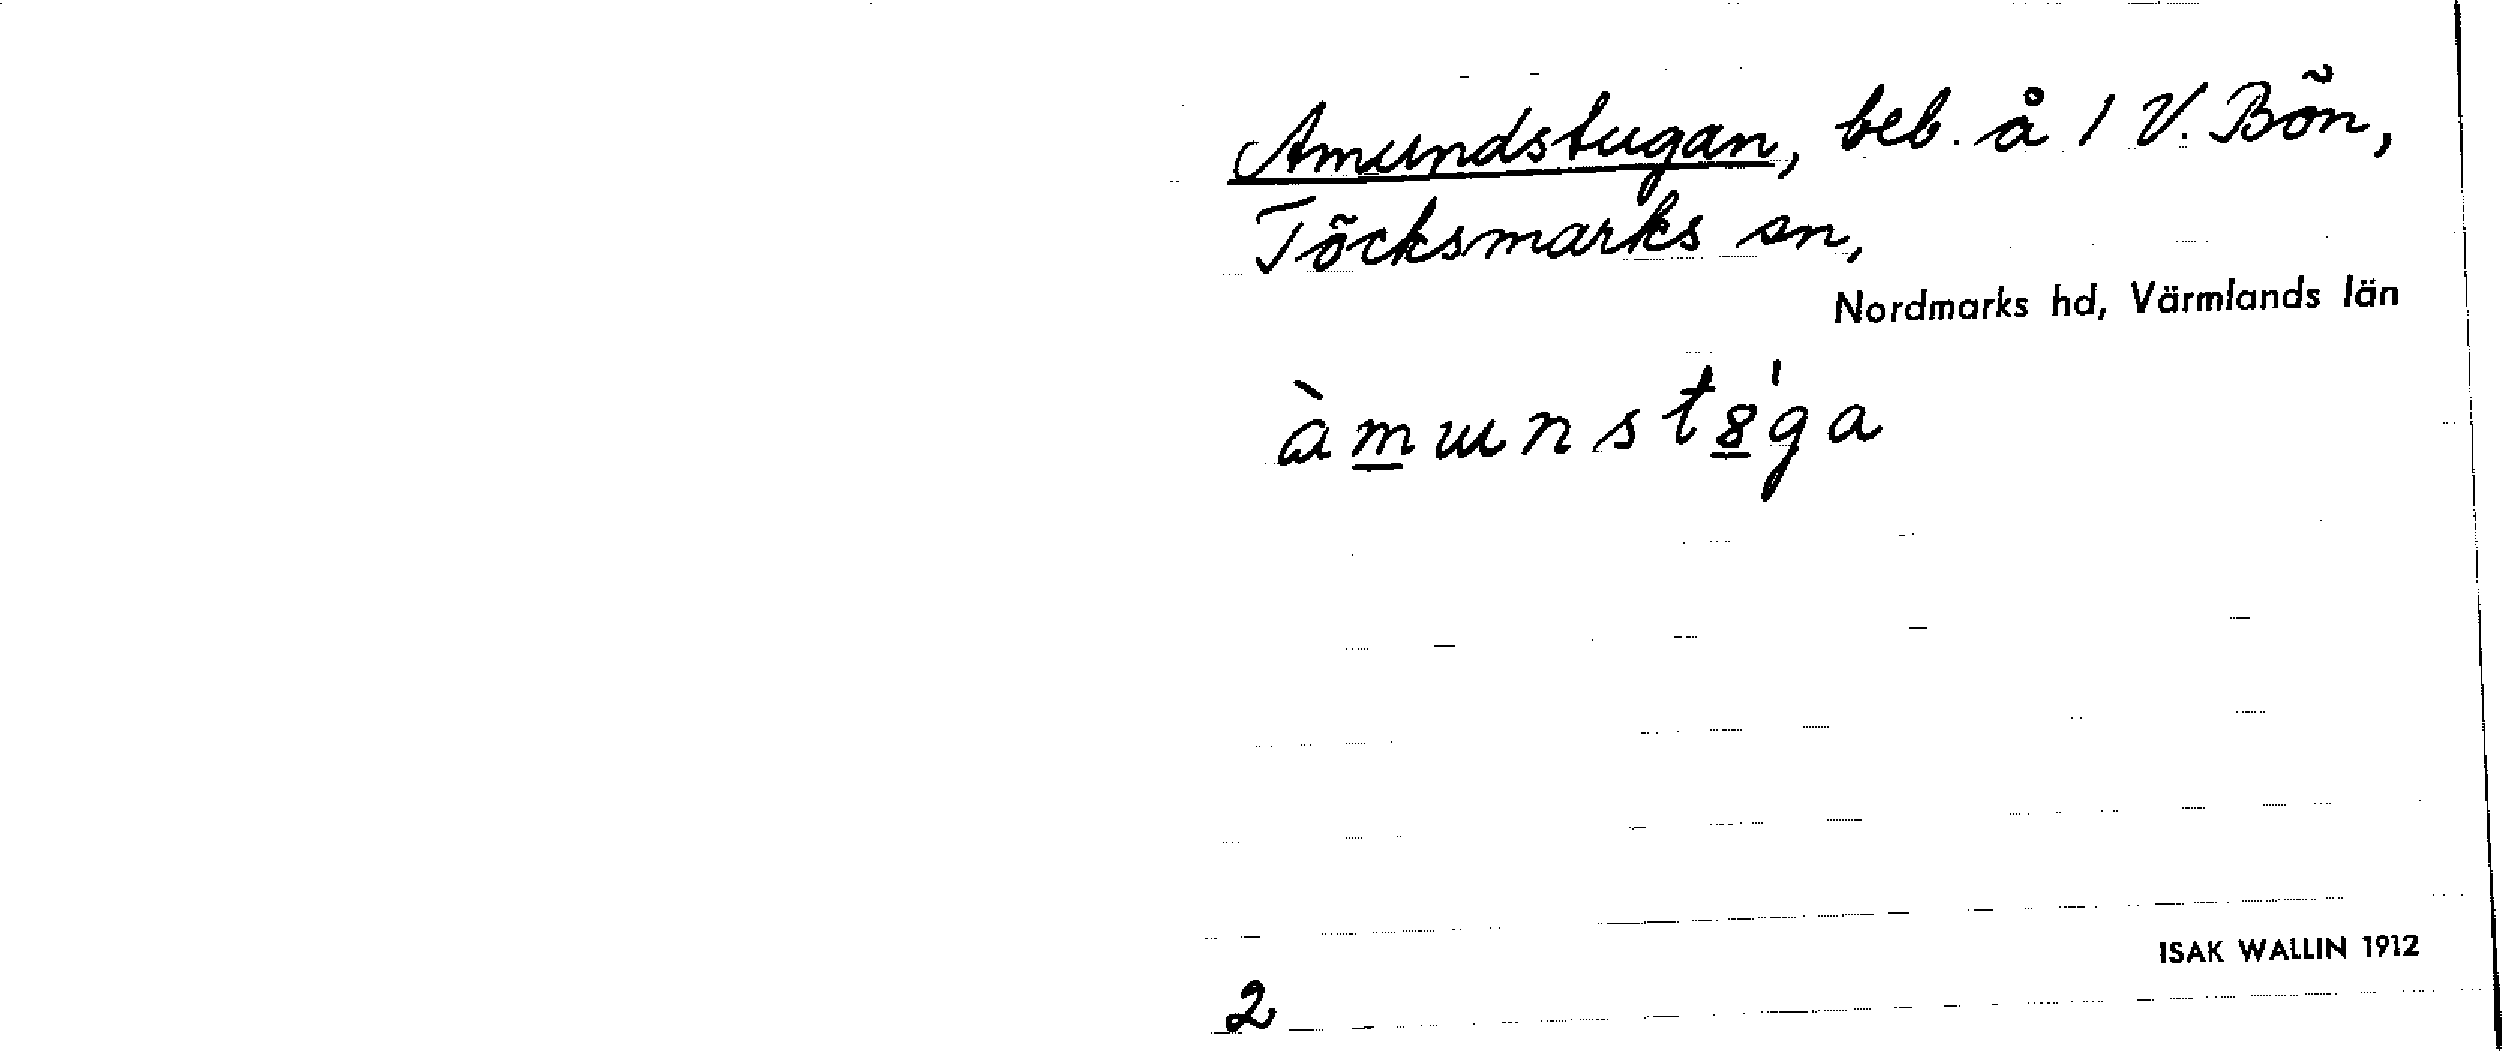 Amundstugan, beb. å 1 V. Bön,
Töcksmarks sn,
Nordmarks hd, Värmlands län
àmɯnstȣ́ga
ISAK WALLIN 1912
2